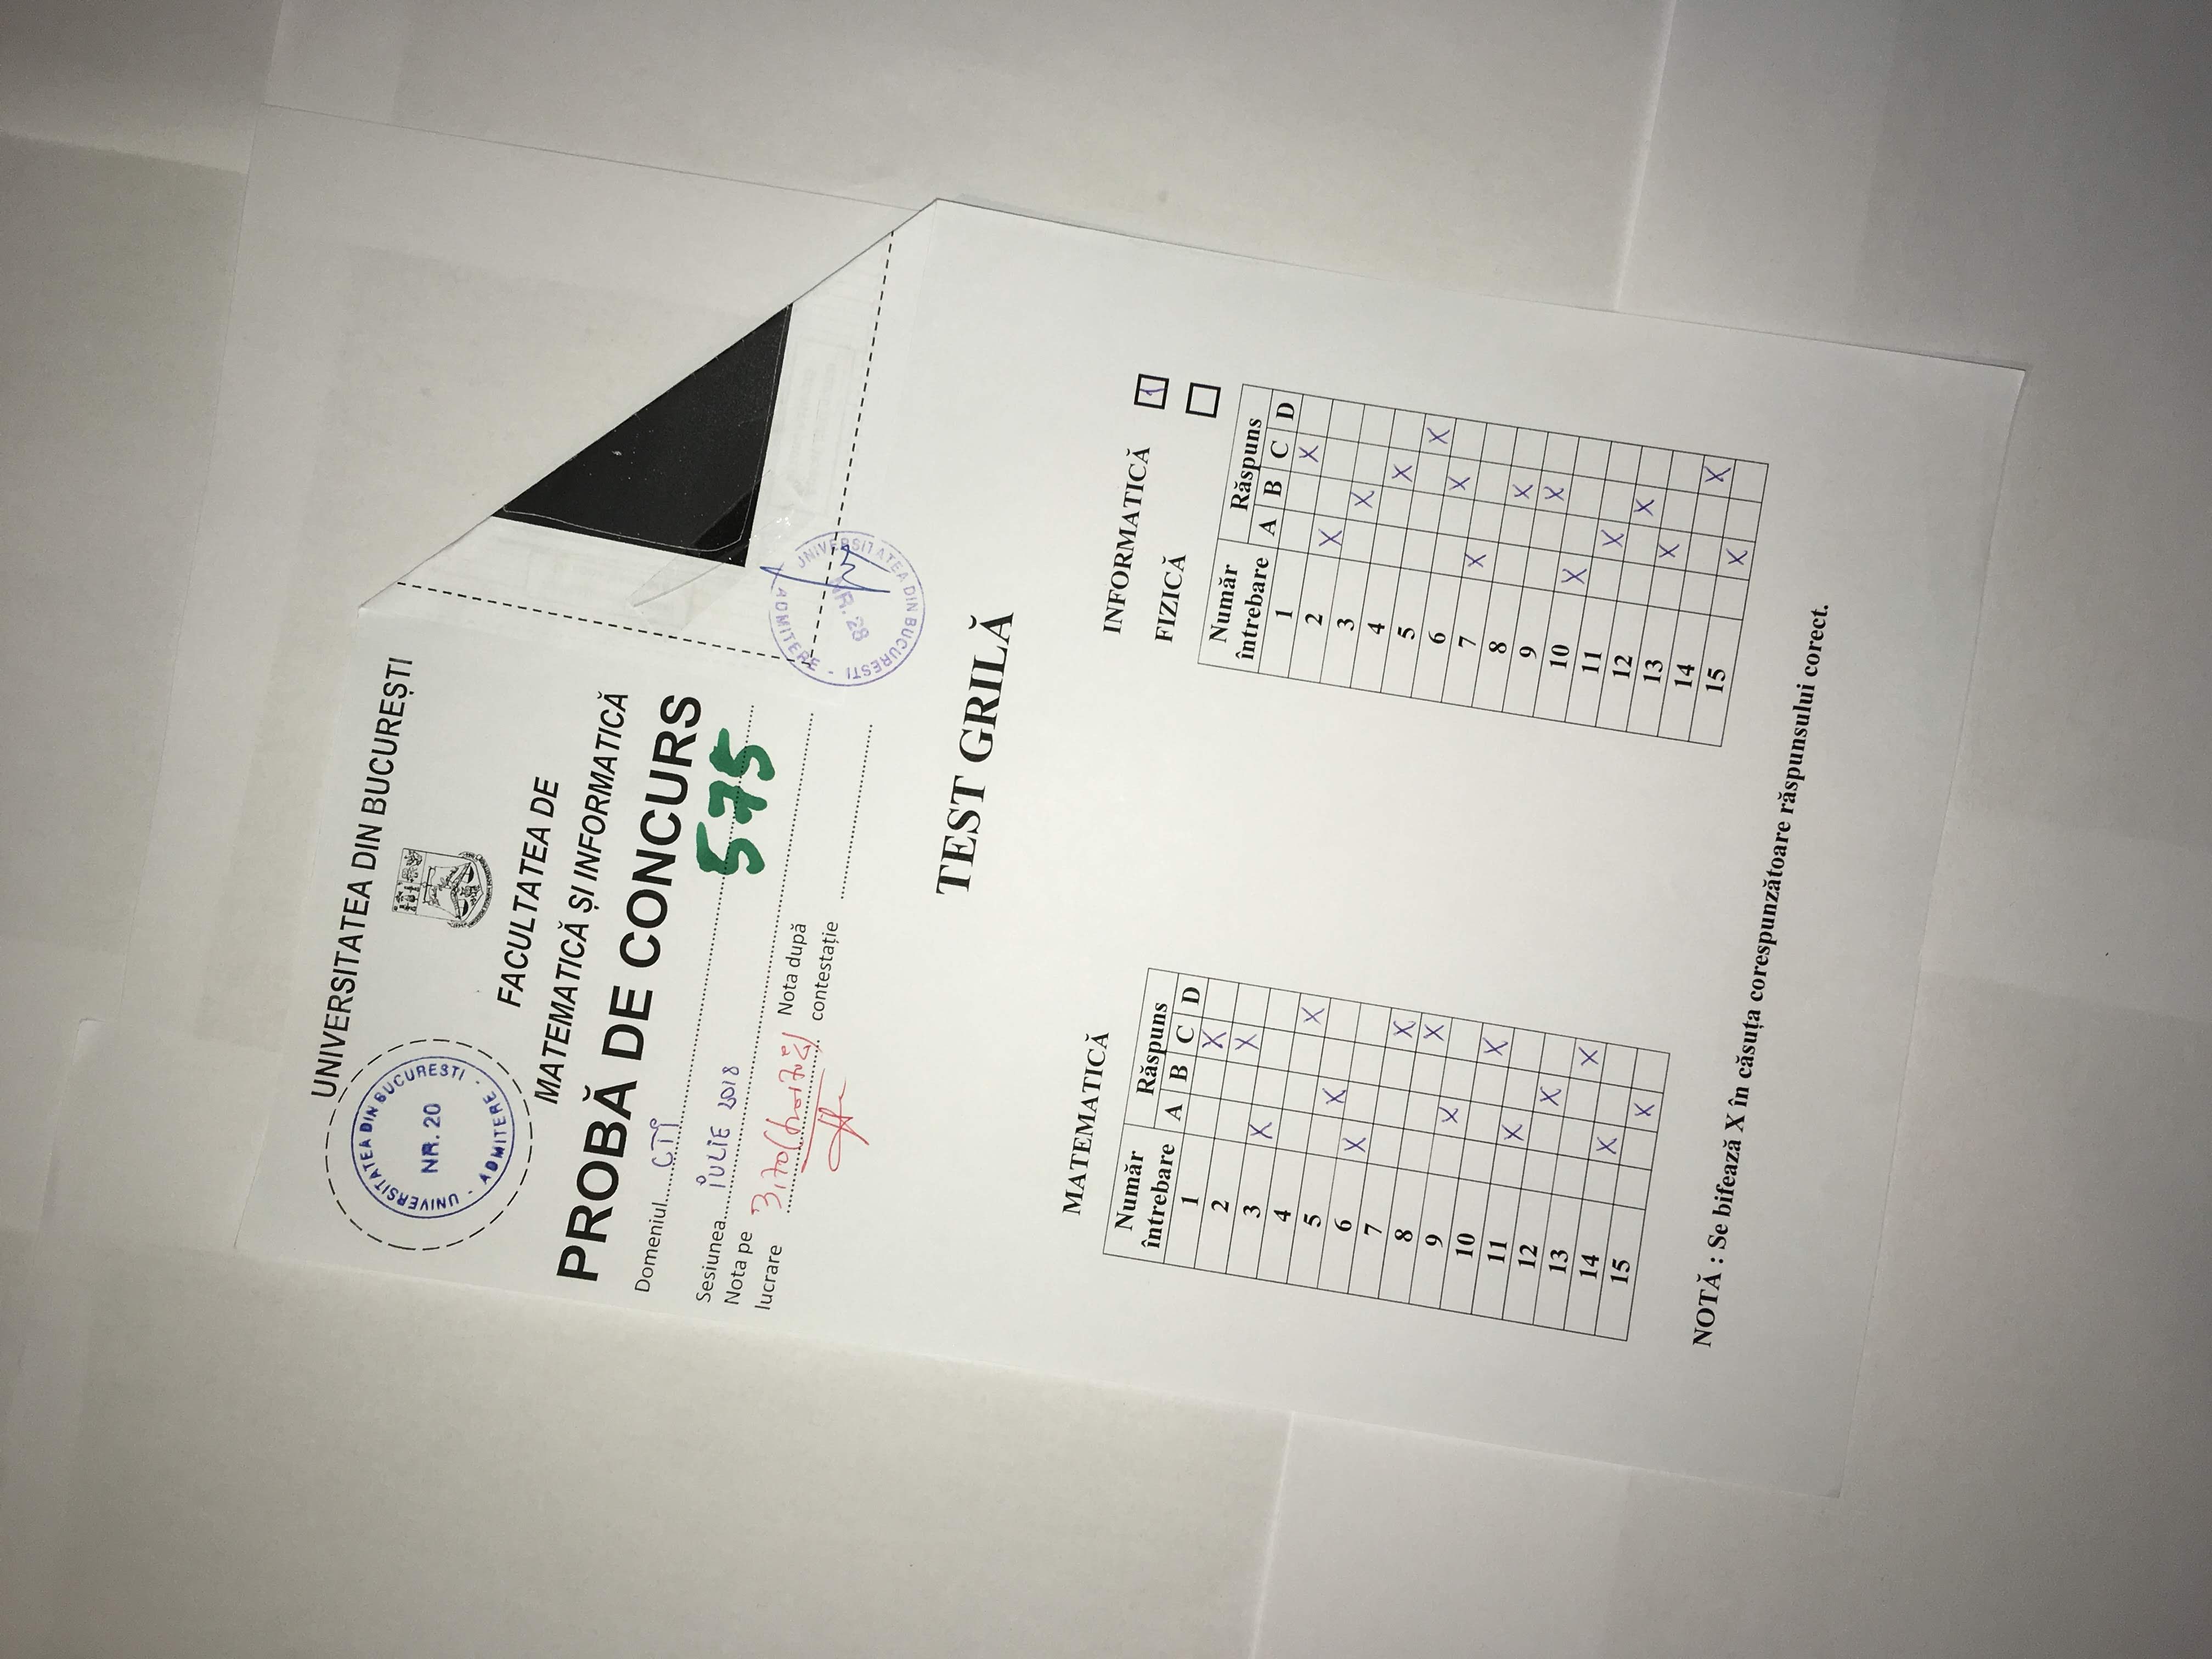 UNIVERSITATEA DIN BUCUREȘTI
UNIVERSITATEA DIN BUCURESTI
NR. 20
ADMITERE
FACULTATEA DE
MATEMATICĂ ȘI INFORMATICĂ
PROBĂ DE CONCURS
Domeniul...... CTI
575
Sesiunea... IULIE 2018
Nota pe
lucrare 3,70
Nota după
contestație
UNIVERSITATEA DIN BUCURESTI
NR. 28
ADMITERE
TEST GRILĂ
MATEMATICĂ
Număr
întrebare
Răspuns
A B C D
1 X
2 X
3 X
4 X
5 X
6 X
7 X
8 X
9 X
10 X
11 X
12 X
13 X
14 X
15 X
INFORMATICĂ 1
FIZICĂ
Număr
întrebare
Răspuns
A B C D
1 X
2 X
3 X
4 X
5 X
6 X
7 X
8 X
9 X
10 X
11 X
12 X
13 X
14 X
15 X
NOTĂ : Se bifează X în căsuța corespunzătoare răspunsului corect.